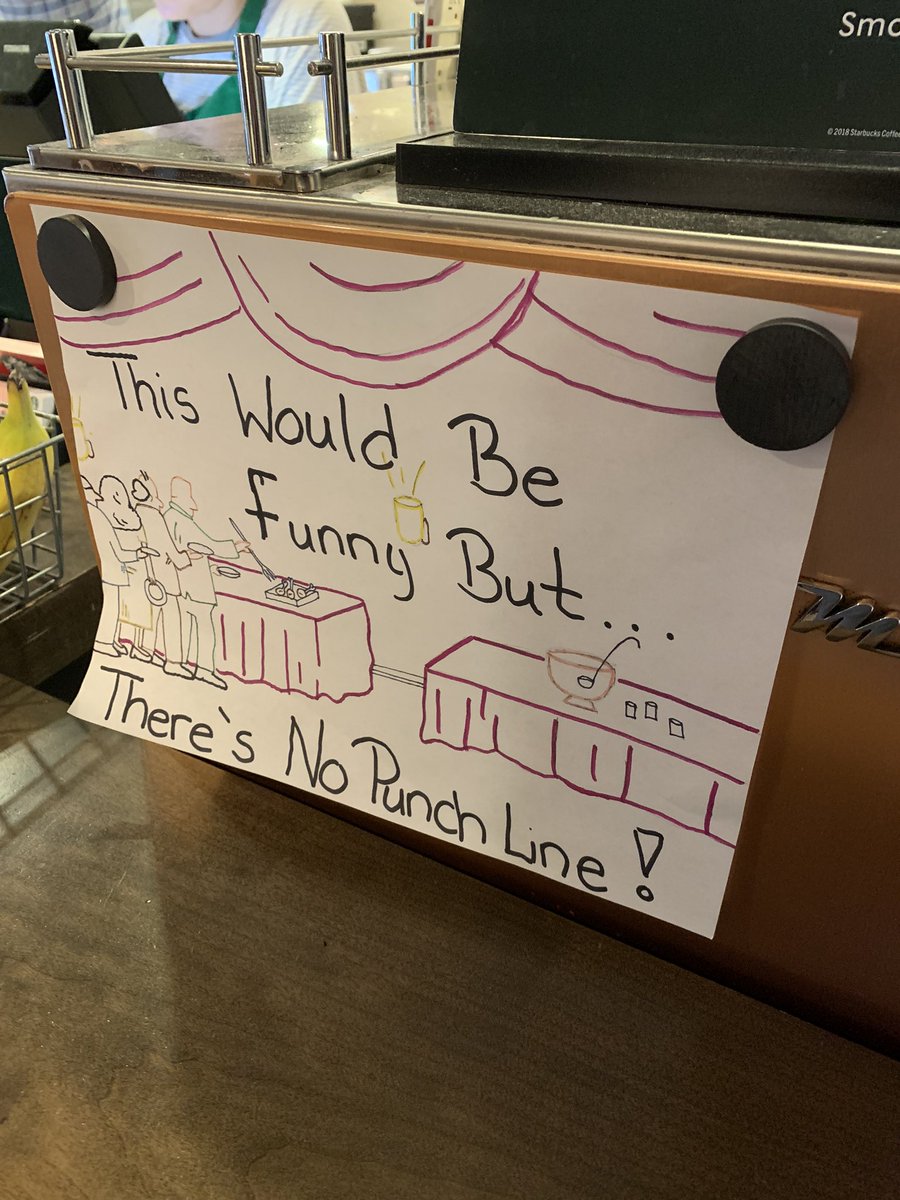 Smo
© 2018 Starbucks Coffe
This Would Be
Funny But...
There`s No Punch Line!